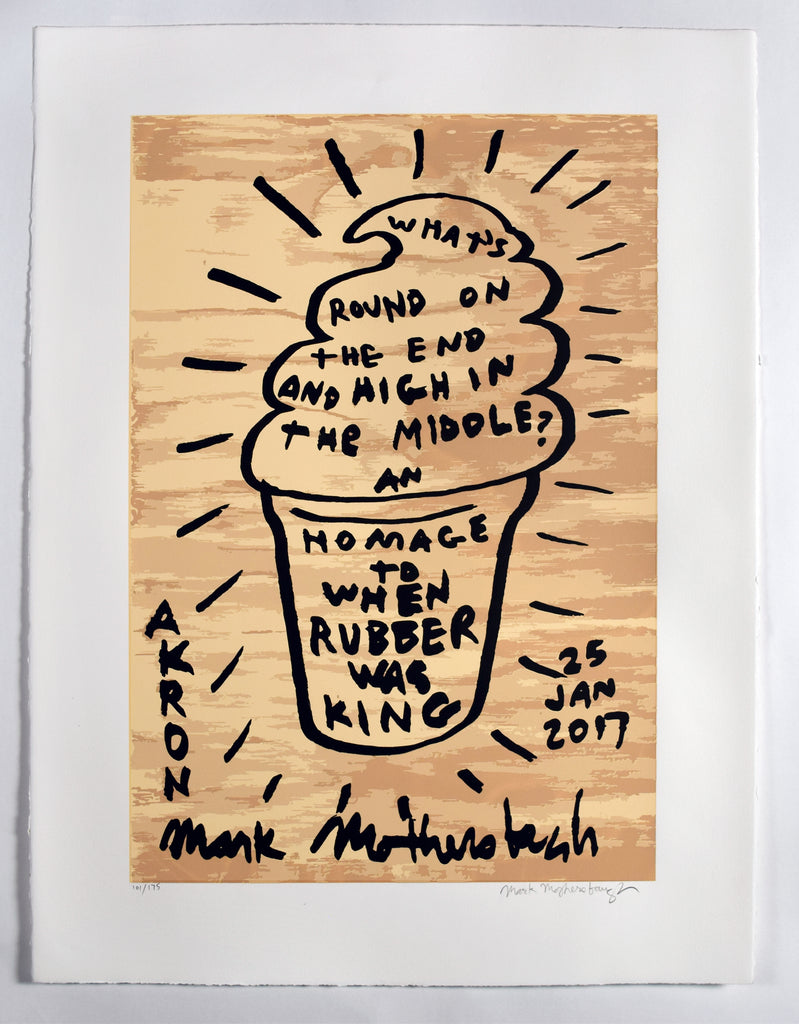 WHAT'S
ROUND ON
THE END
AND HIGH IN
THE MIDDLE?
AN
HOMAGE
TO
WHEN
RUBBER
WAS
KING
AKRON
25
JAN
2017
Mark Mothersbaugh
101/175
Mark Mothersbaugh